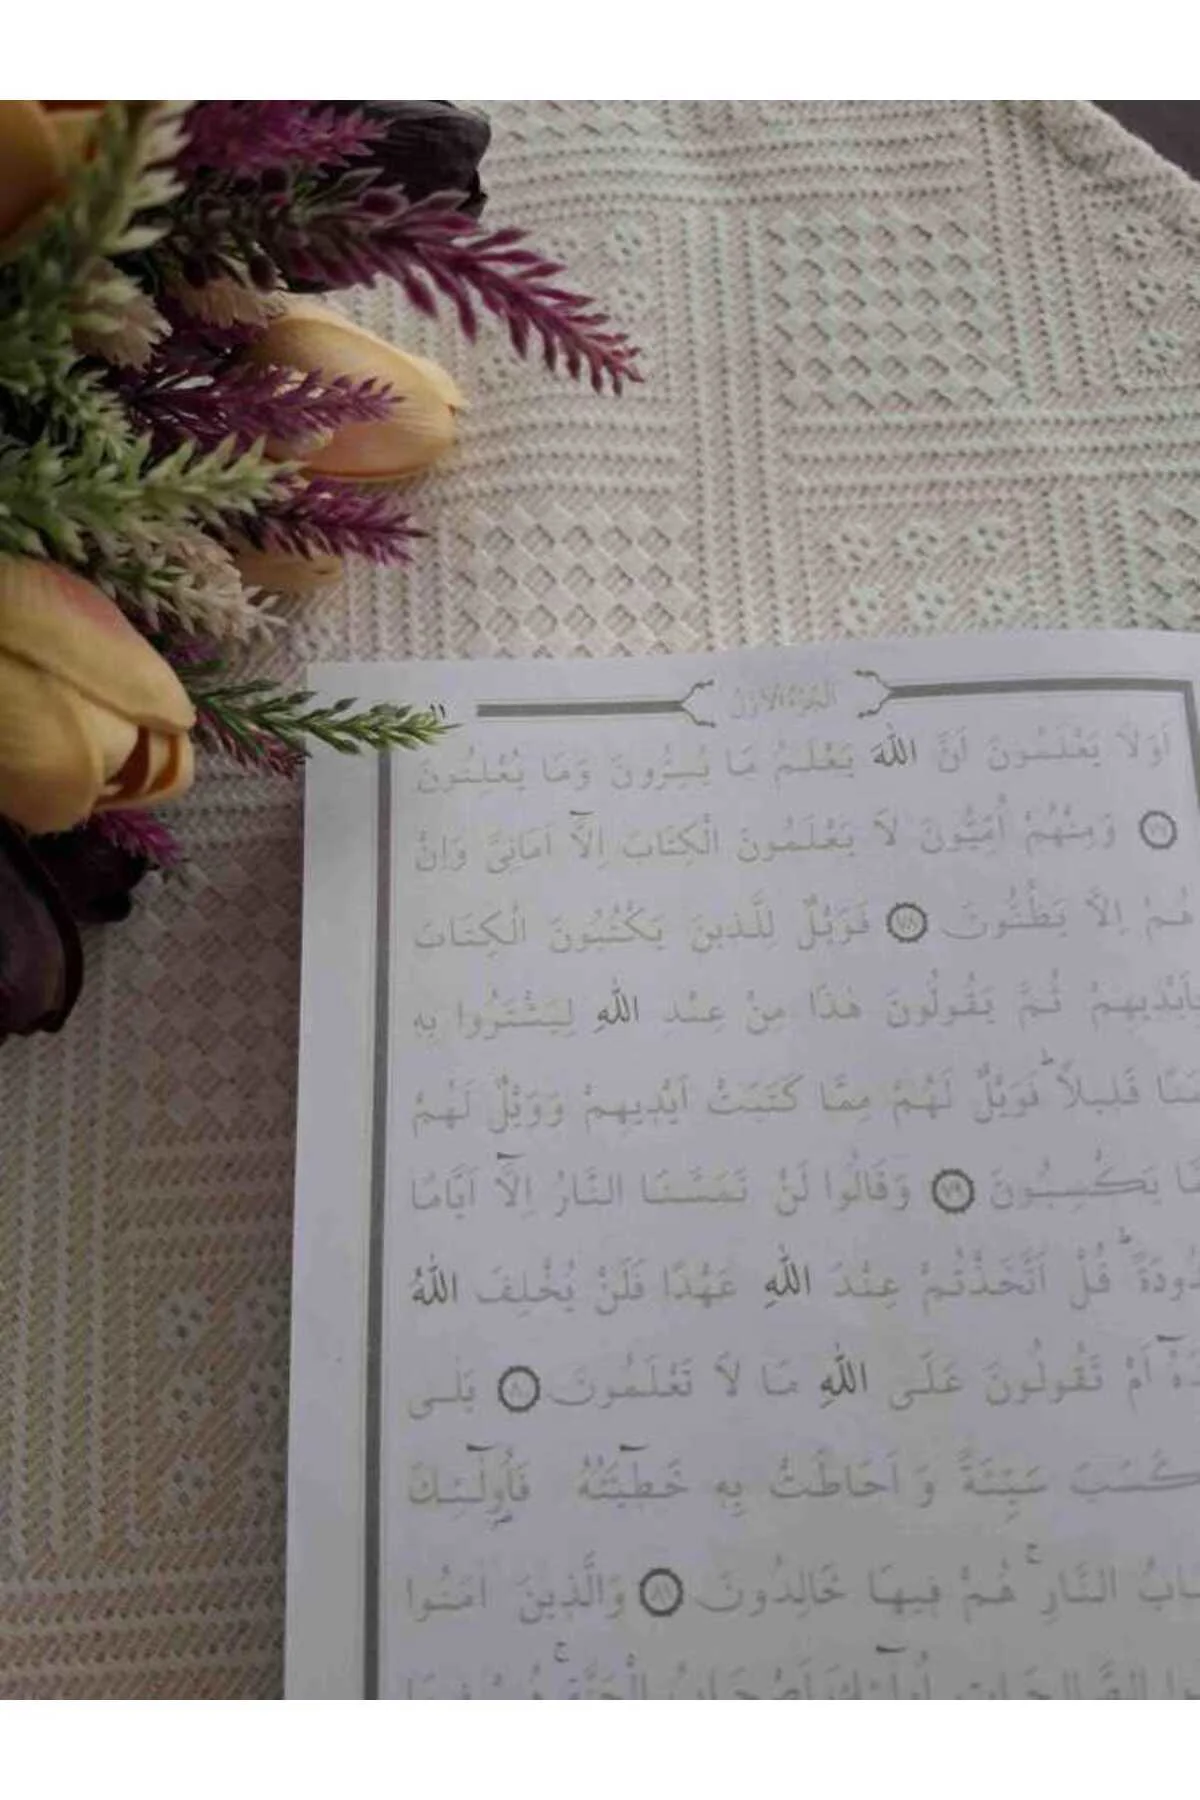 ١١
اَلْجُزْءُ الْاَوَّلُ
اَوَلَا يَعْلَمُونَ اَنَّ اللّٰهَ يَعْلَمُ مَا يُسِرُّونَ وَمَا يُعْلِنُونَ
﴿٧٧﴾ وَمِنْهُمْ اُمِّيُّونَ لَا يَعْلَمُونَ الْكِتَابَ اِلَّٓا اَمَانِىَّ وَاِنْ
هُمْ اِلَّا يَظُنُّونَ ﴿٧٨﴾ فَوَيْلٌ لِلَّذِينَ يَكْتُبُونَ الْكِتَابَ
بِاَيْدِيهِمْ ثُمَّ يَقُولُونَ هٰذَا مِنْ عِنْدِ اللّٰهِ لِيَشْتَرُوا بِهِ
ثَمَنًا قَلِيلًا ۜ فَوَيْلٌ لَهُمْ مِمَّا كَتَبَتْ اَيْدِيهِمْ وَوَيْلٌ لَهُمْ
مَّا يَكْسِبُونَ ﴿٧٩﴾ وَقَالُوا لَنْ تَمَسَّنَا النَّارُ اِلَّٓا اَيَّامًا
دُودَةً ۜ قُلْ اَتَّخَذْتُمْ عِنْدَ اللّٰهِ عَهْدًا فَلَنْ يُخْلِفَ اللّٰهُ
دَهُٓ اَمْ تَقُولُونَ عَلَى اللّٰهِ مَا لَا تَعْلَمُونَ ﴿٨٠﴾ بَلٰى
كَسَبَ سَيِّئَةً وَاَحَاطَتْ بِهِ خَطِٓيـَٔتُهُ فَاُولٰٓئِكَ
ابُ النَّارِ ۚ هُمْ فِيهَا خَالِدُونَ ﴿٨١﴾ وَالَّذِينَ اٰمَنُوا
وا الصَّالِحَاتِ اُولٰٓئِكَ اَصْحَابُ الْجَنَّةِ ۚ هُمْ فِيهَا